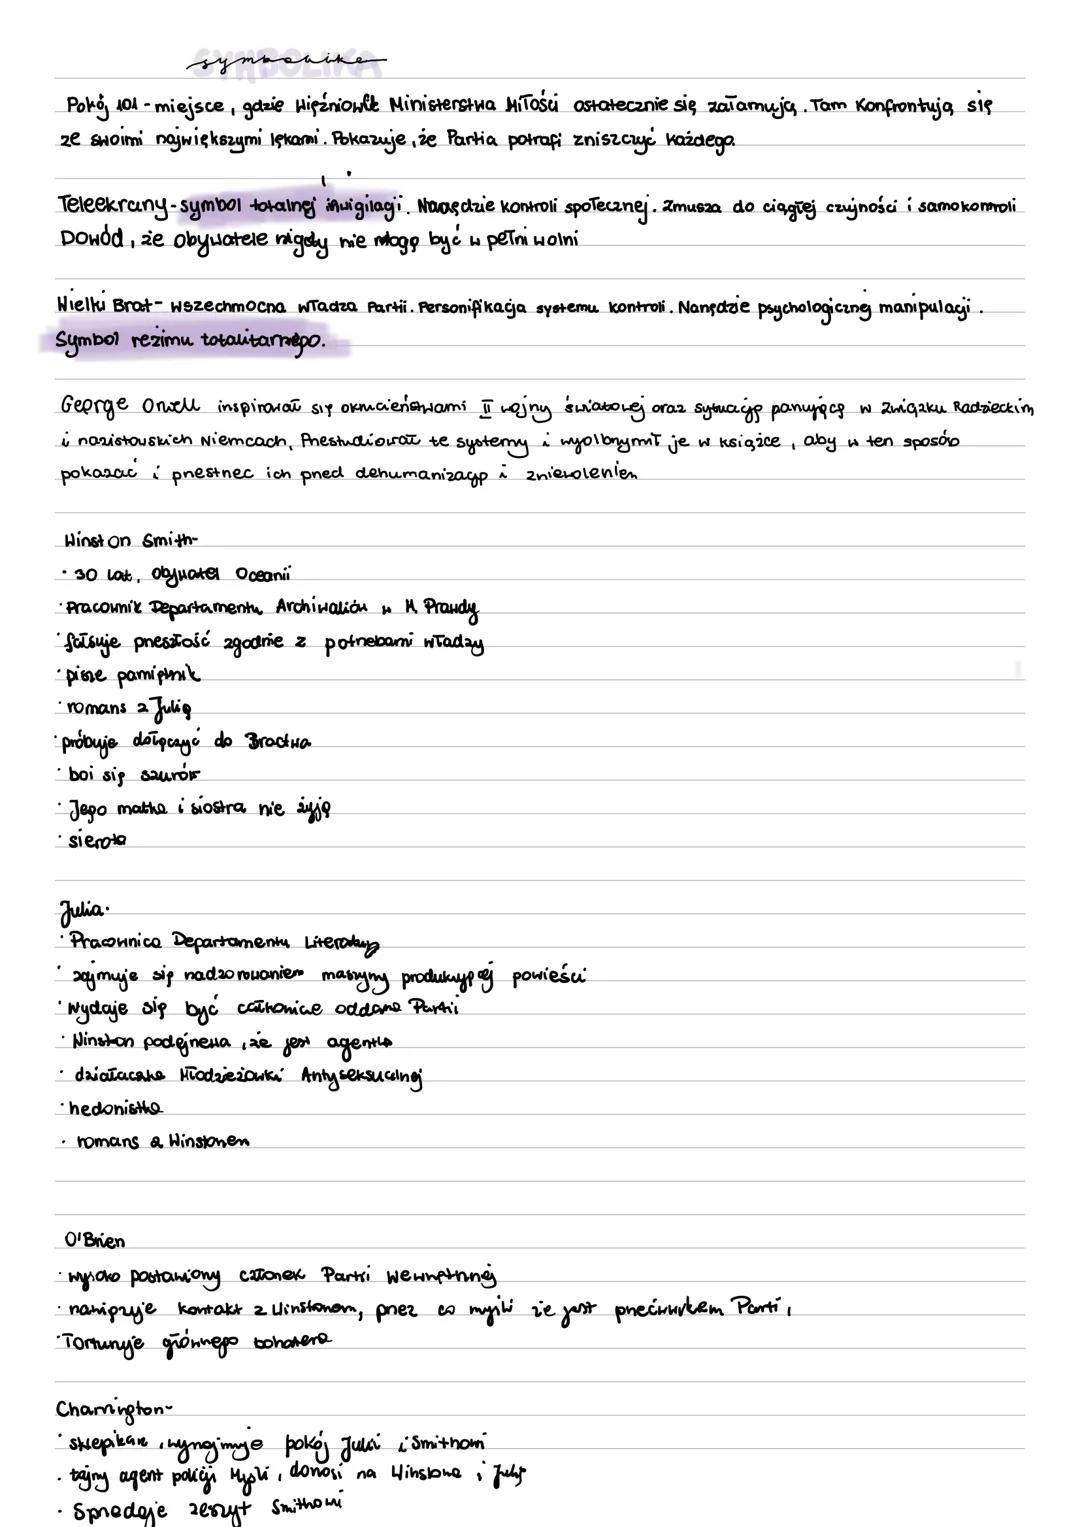 symbolika
Pokój 101 - miejsce, gdzie więźniowie Ministerstwa Miłości ostatecznie się załamują. Tam konfrontują się
ze swoimi największymi lękami. Pokazuje, że Partia potrafi zniszczyć każdego.
Teleekrany - symbol totalnej inwigilacji. Narzędzie kontroli społecznej. Zmusza do ciągłej czujności i samokontroli
Dowód, że obywatele nigdy nie mogą być w pełni wolni
Wielki Brat - wszechmocna władza Partii. Personifikacja systemu kontroli. Narzędzie psychologicznej manipulacji.
Symbol reżimu totalitarnego.
George Orwell inspirował się okrucieństwami II wojny światowej oraz sytuacją panującą w Związku Radzieckim
i nazistowskich Niemcach. Przestudiował te systemy i wyolbrzymił je w książce, aby w ten sposób
pokazać i przestrzec ich przed dehumanizacją i zniewoleniem
Winston Smith-
· 30 lat, obywatel Oceanii
· Pracownik Departamentu Archiwaliów w M. Prawdy
· fałsuje przeszłość zgodnie z potrzebami władzy
· pisze pamiętnik
· romans z Julią
· próbuje dołączyć do Bractwa
· boi się szczurów
· Jego matka i siostra nie żyją
· sierota
Julia·
· Pracownica Departamentu Literatury
· zajmuje się nadzorowaniem maszyny produkującej powieści
· Wydaje się być całkowicie oddana Partii
· Winston podejrzewa, że jest agentką
· działaczka Młodzieżówki Antyseksualnej
· hedonistka
· romans z Winstonem
O'Brien
· wysoko postawiony członek Partii Wewnętrznej
· nawiązuje kontakt z Winstonem, przez co myśli że jest przeciwnikem Parti,
· Torturuje głównego bohatera
Charrington-
· sklepikarz, wynajmuje pokój Julii i Smithowi
· tajny agent policji Myśli, donosi na Winstona i Julię
· Sprzedaje zeszyt Smithowi